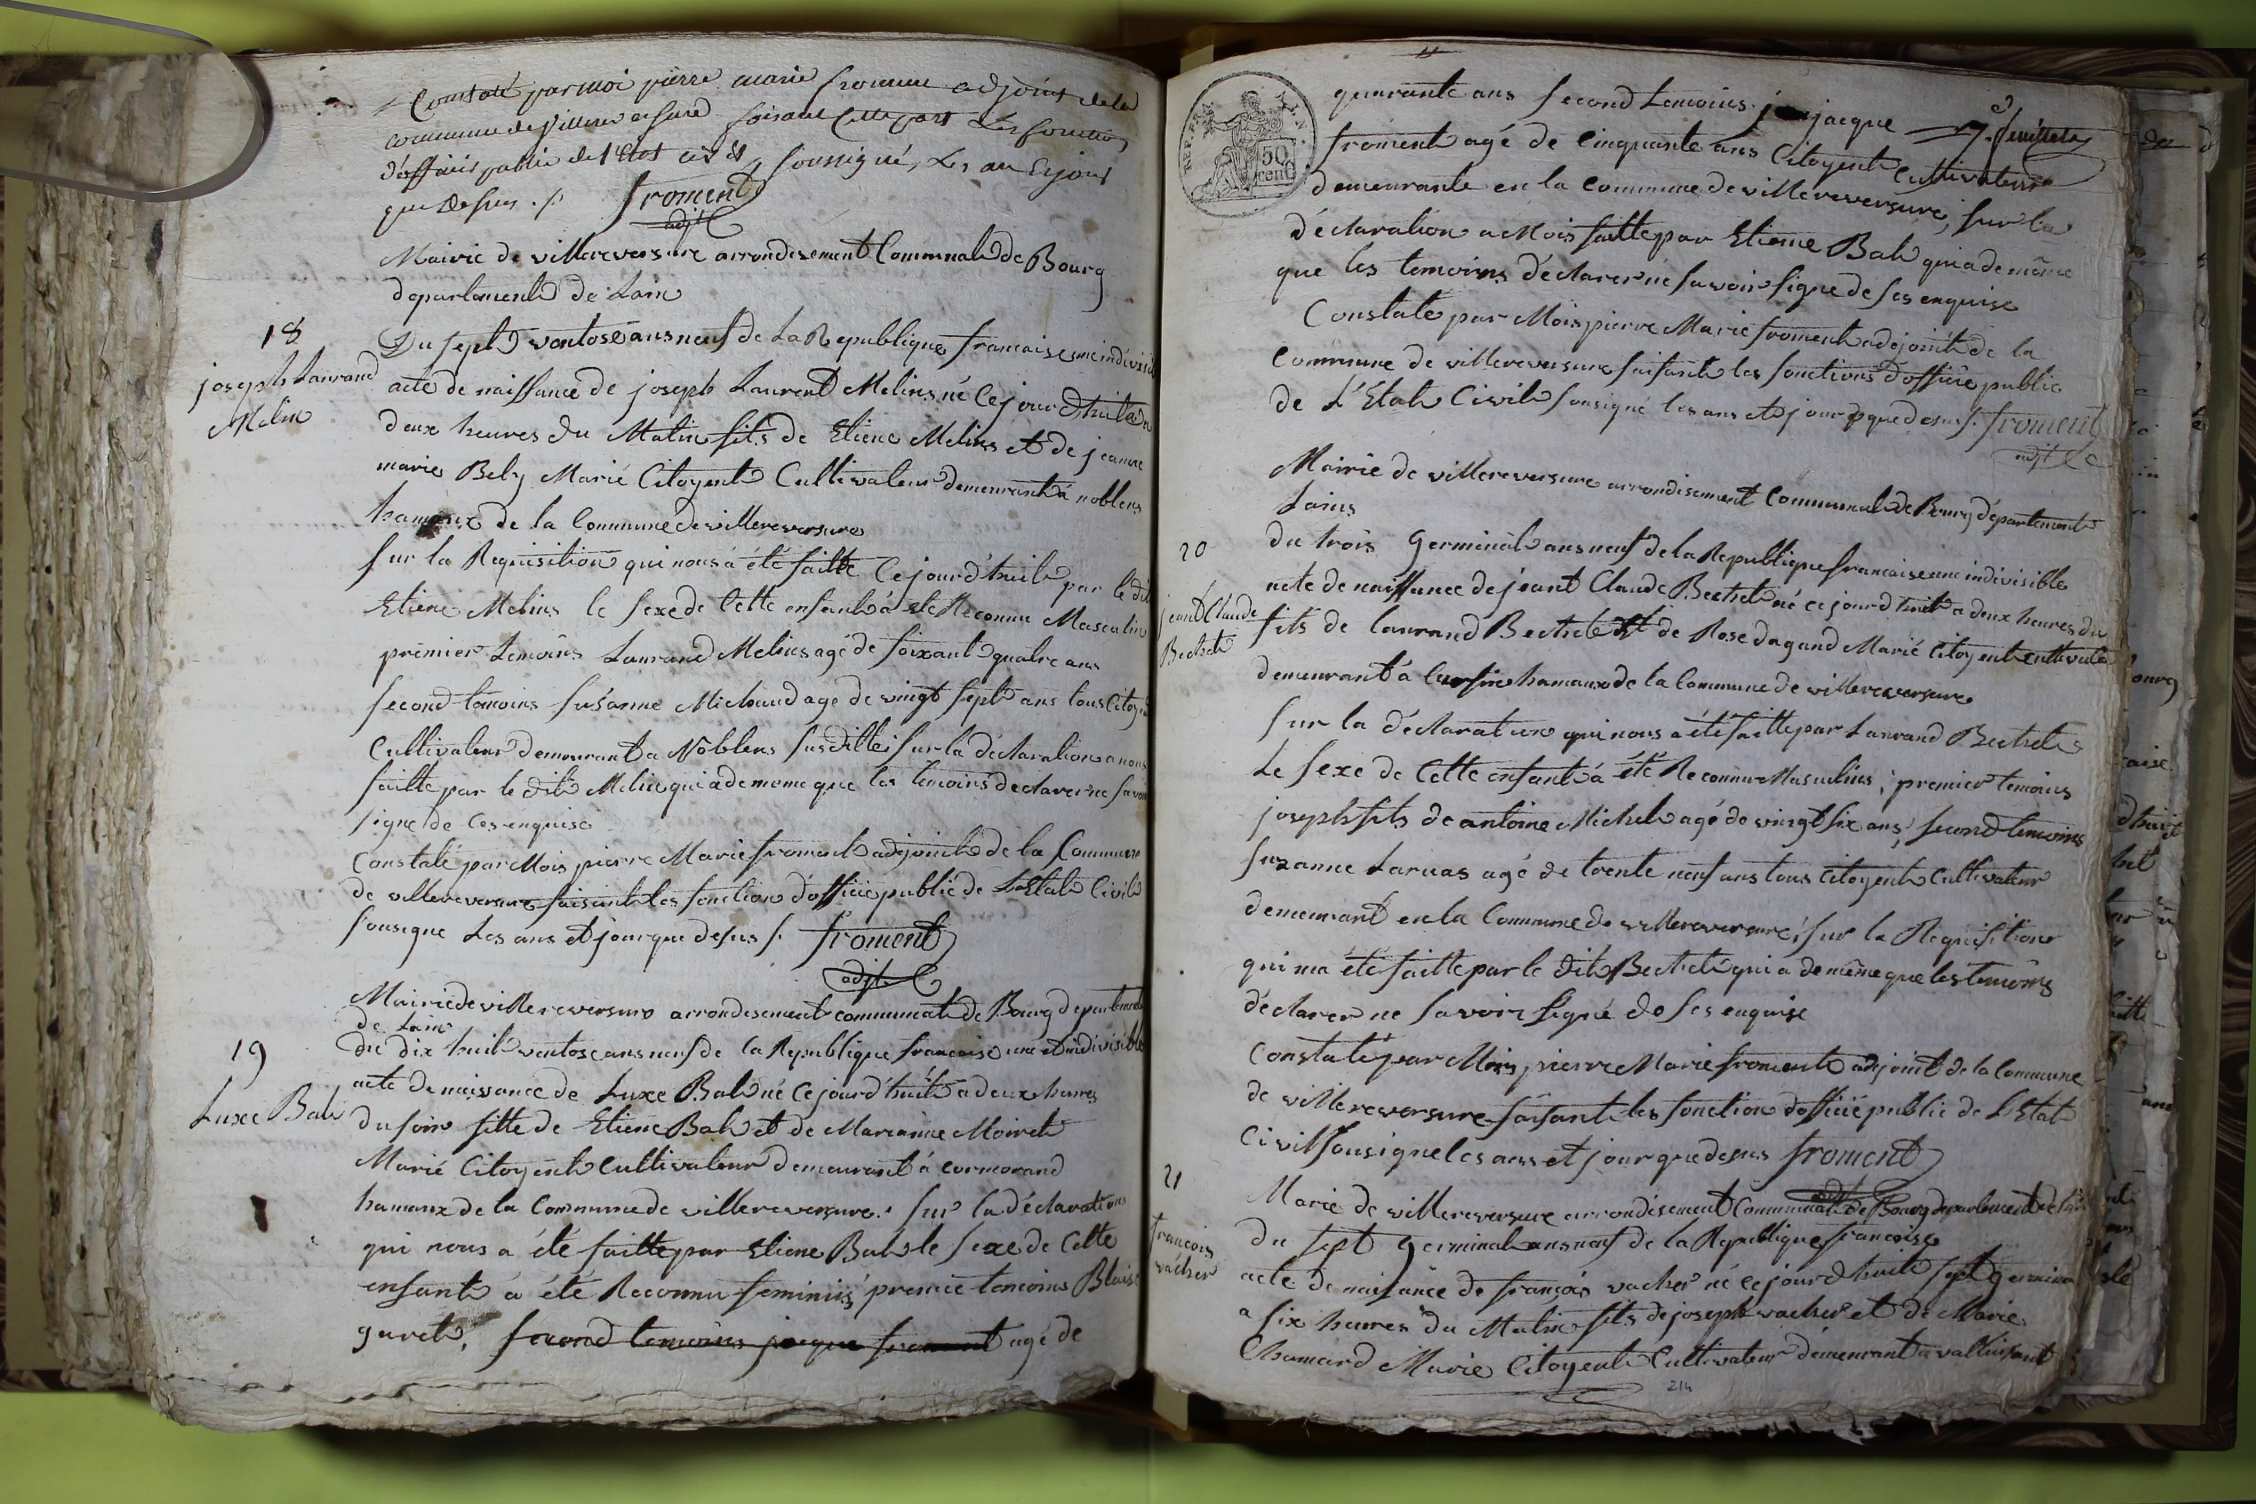 Constaté par moi pierre marie froment adjoint de la
commune de Villereversure faisant cette part Les fonction
d'officier public de l'Etat civil soussigné, Les an et jour
que desus ./.
froment
adjt
Mairie de villereversure arrondisement Communal de Bourg
departement de Lain
18
joseph Laurand
Melin
Du sept ventose ans neuf de La Republique francaise une indivisib
acte de naissance de joseph Laurent Melins né Cejourdhuit a
deux heures du Matin fils de Etiene Melins et de jeanne
marie Bely Marié Citoyent Cultivateur demeurant á noblens
hamaux de la Commune de villereversure
sur la Requisition qui nous á été faitte Cejourd'huit par le dit
Etiene Melins le sexe de Cette enfant á ete Reconnu Masculin
premier temoins Laurand Melins agé de soixant quatre ans
second temoins susanne Michaud age de vingt sept ans tous Citoye
Cultivateur demeurant a Noblens susditte sur la déclaration a nous
faitte par le dit Melin qui a de meme que les temoins declarer ne savoir
signe de ces enquise
Constaté par Mois pierre Marie froment adjoint de la Commune
de villereversure faisant les fonction d'officié public de L'Etat Civil
sousigne Les ans et jour que desus ./.
froment
adjt
Mairie de villereversure arrondisement communal de Bourg departement
de Lain
19
Luxe Bal
du dix huit ventose ans neuf de la Republique francaise une et indivisible
acte de naissance de Luxe Bal né Cejourd'huit a deux heures
du soir fille de Etiene Bal et de Marianne Moiret
Marié Citoyent Cultivateur demeurant á cormorand
hamaux de la Commune de villereversure. sur la déclaration
qui nous a été faitte par Etiene Bal le sexe de Cette
enfant á été Reconnu feminin premié temoins Blaise
guret, second temoins jacque froment agé de
quarante ans second temoins jacque
froment agé de Cinquante ans Citoyent Cultivateur
demeurante en la Commune de villereversure, sur la
déclaration a Mois faitte par Etienne Bal qui a de même
que les temoins déclarer ne savoir signe de ses enquise
7. feuillets
REP. FRA.
50 cent
Constate par Mois pierre Marie froment adejoint de la
Commune de villereversure faisant les fonctions d'officié public
de L'Etat Civil sousigné les ans et jour que desus ./. froment
adjt
Mairie de villereversure arrondisement Communal de Bourg département
Lains
20
jeant Claude
Bechet
du trois Germinal ans neuf de la Republique francaise une indivisible
acte de naissance de jeant Claude Bechet né ce jourd'huit a deux heures du
fils de laurand Bechet Et de Rose dagand Marié Citoyent cultivate
demeurant á hamaux de la Commune de villereversure
sur la déclaration qui nous a été faitte par Laurand Bechet
Le sexe de Cette enfant á été Reconnu Masculins, premier temoins
joseph fils de antoine Michel agé de vingt six ans, second temoins
suzanne Laruas agé de trente neuf ans tous Citoyent Cultivateur
demeurant en la Commune de villereversure, sur la Requisition
qui ma été faitte par le dit Bechet qui a de même que les temoins
déclarer ne savoir signé de ses enquise
Constaté par Mois pierre Marie froment adejoint de la Commune
de villereversure faisant les fonction d'officié public de L'Etat
Civil sousigne les ans et jour que desus froment
adjt
21
francois
vacher
Marie de villereversure arrondisement Communal de Bourg departement de lain
Du sept germinal ans neuf de la Republique francoise
acte de naisance de françois vacher né ce jourd'huit sept germinal
a six heures du Matin fils de joseph vacher et de Marie
Chanard Marie Citoyent Cultivateur démeurant a
214